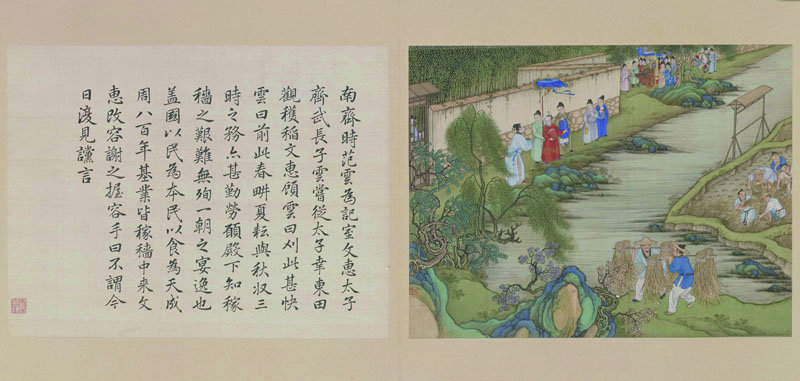 南齊時范雲為記室文惠太子
齊武長子雲嘗從太子幸東田
觀穫稻文惠顧雲曰刈此甚快
雲曰前此春畊夏耘與秋収三
時之務亦甚勤勞願殿下知稼
穡之艱難無殉一朝之宴逸也
盖國以民為本民以食為天成
周八百年基業皆稼穡中來文
惠改容謝之握容手曰不謂今
日復見讜言